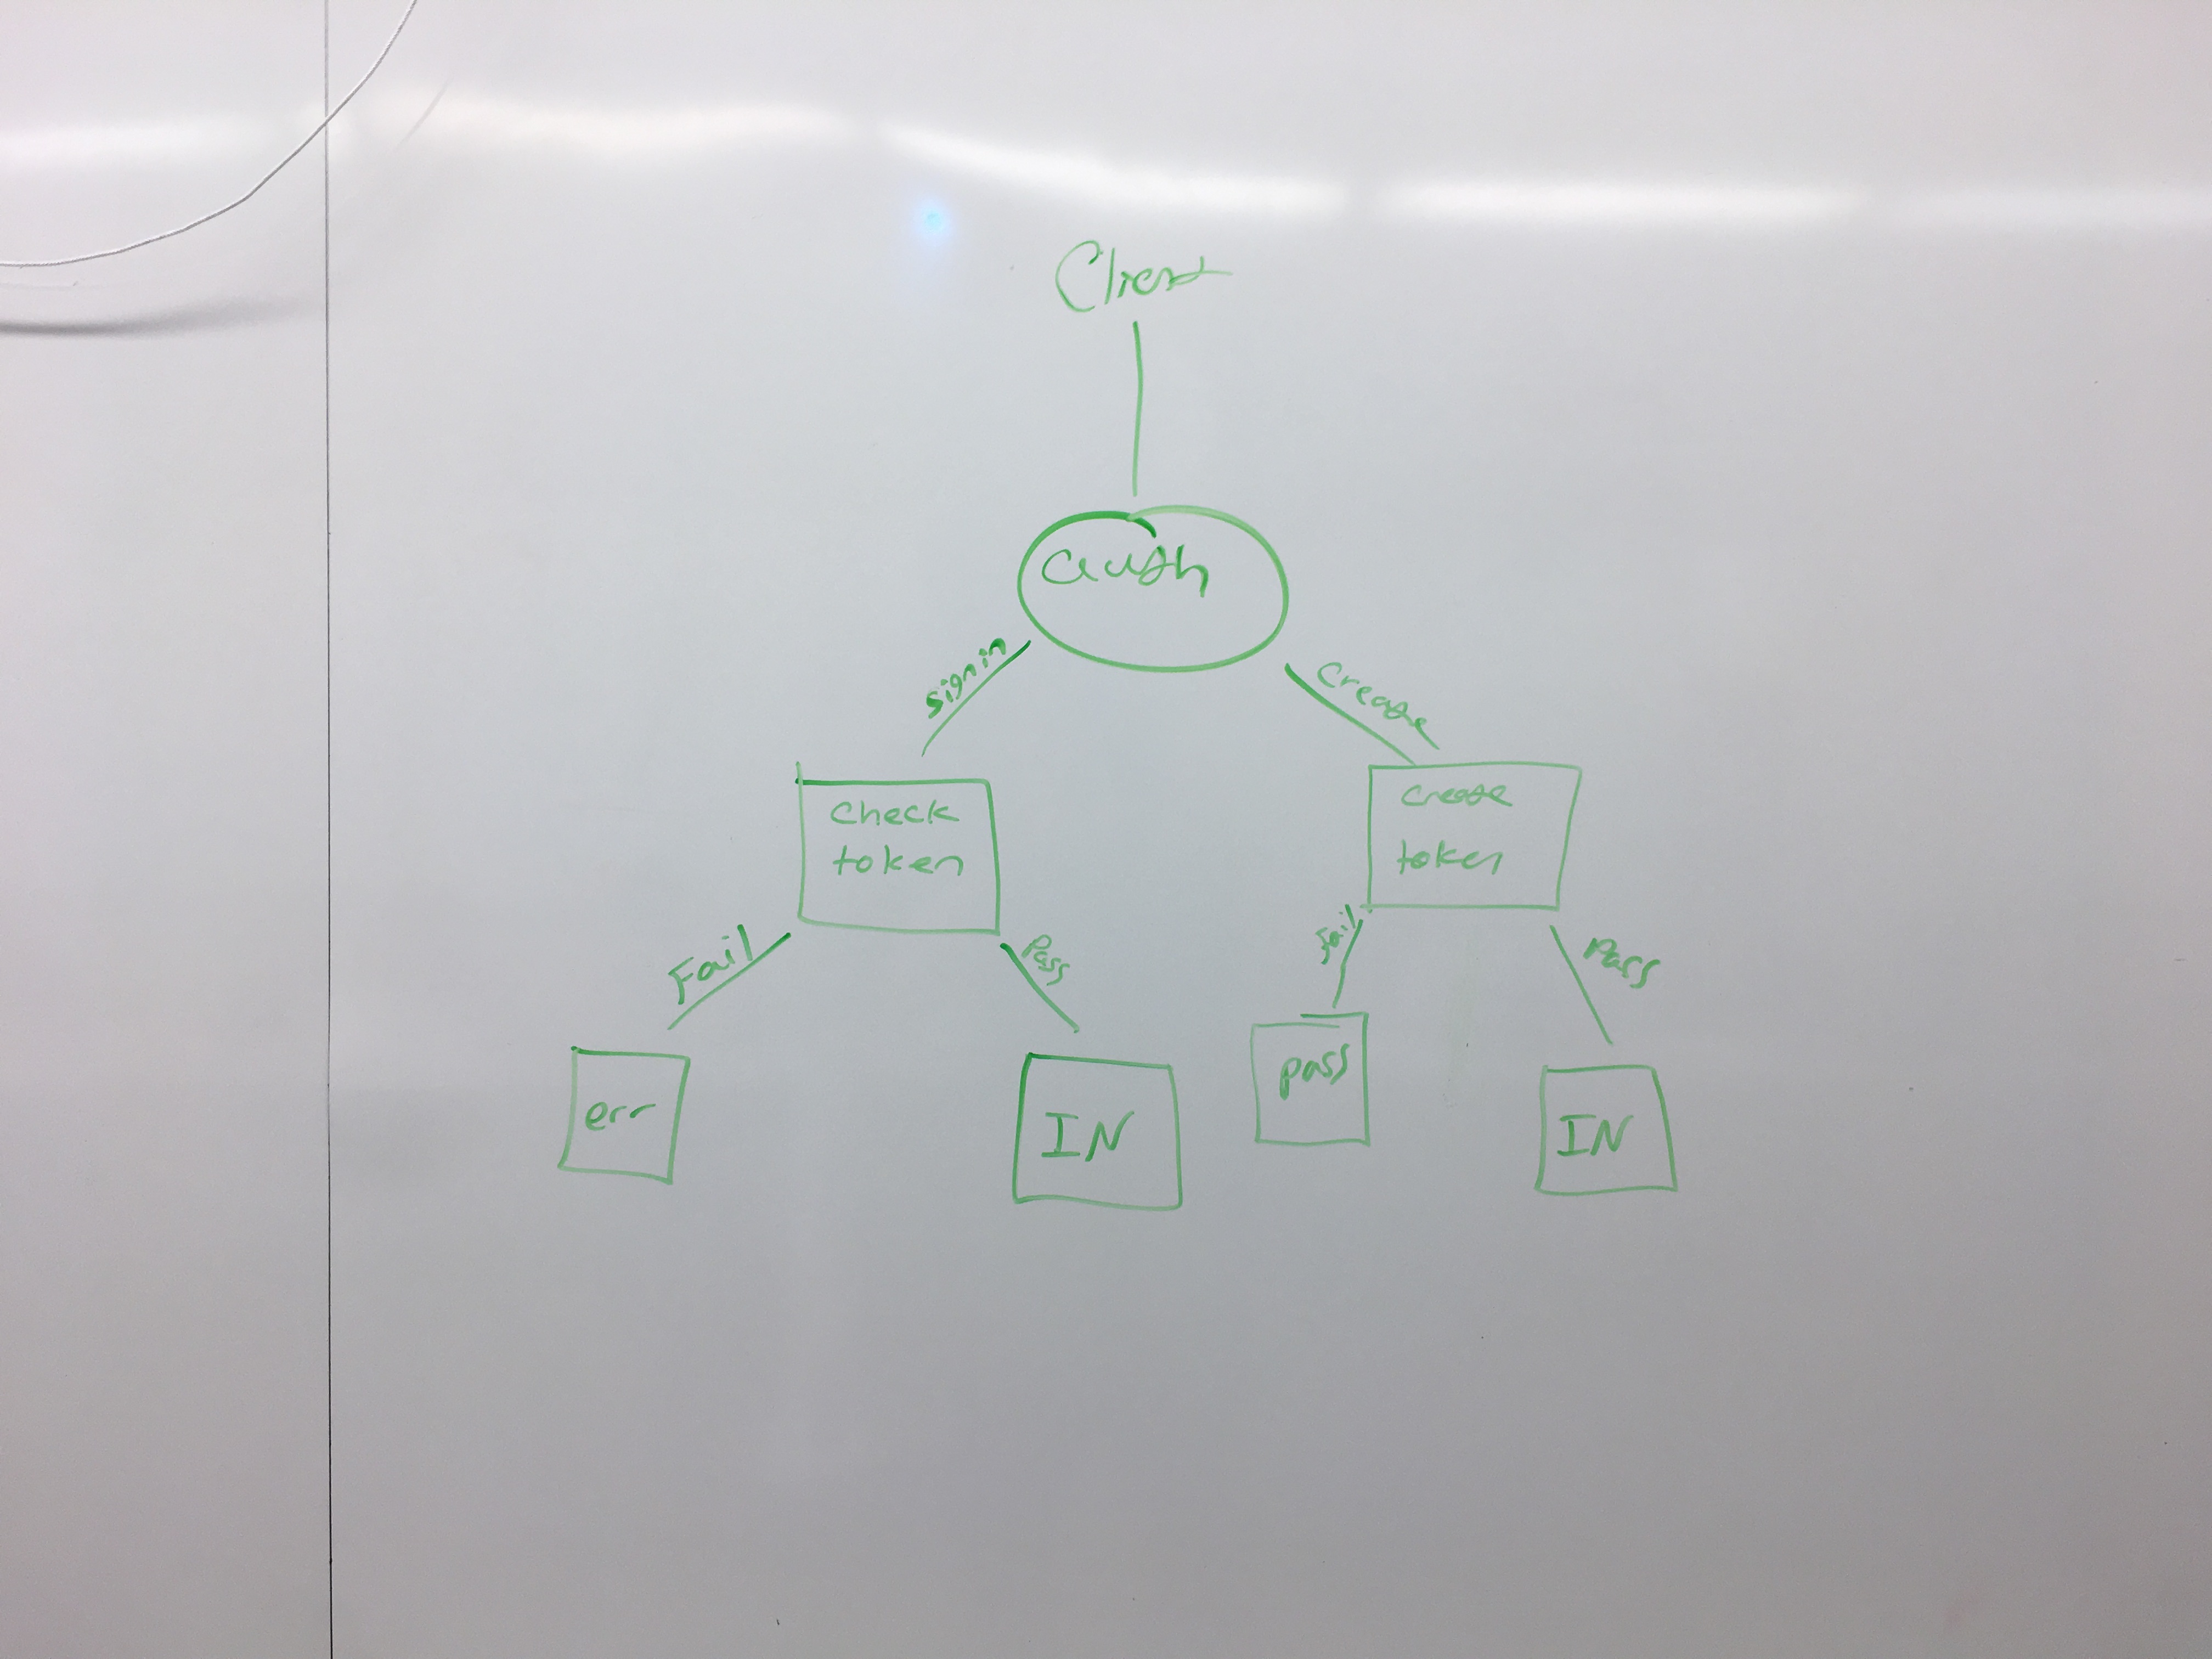 Client
auth
Signin
Create
Check
token
Create
token
Fail
Pass
Fail
Pass
err
IN
pass
IN